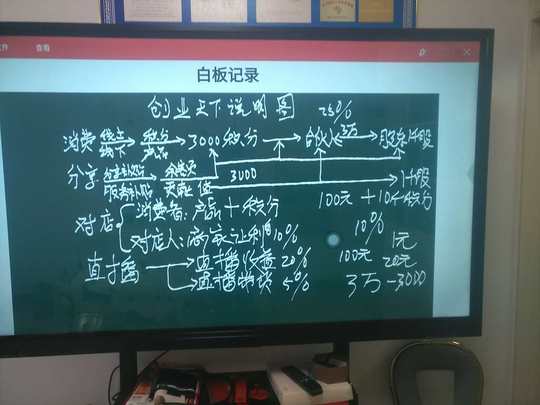 查看
白板记录
创业天下说明图 25%
消费 线上 线下 积分 产品 3000积分 合伙人 3万 股东 1股
分享 3000 1股
100元 + 10个积分
对店 消费者:产品+积分
对店人:商家让利10% 10% 1元
100元 20元
直播 直播收益20%
直播带货 5% 3万-3000